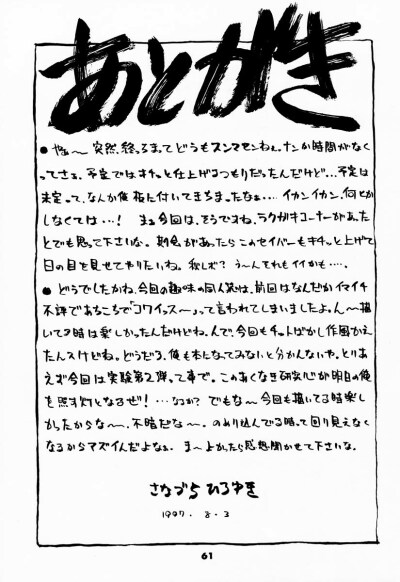 あとがき
●やぁ〜突然、終っちまってどうもスンマセンねェ。ナンか時間がなく
ってさぁ。予定ではキチッと仕上げるつもりだったんだけど…予定は
未定って、なんか俺 板に付いてきちまったなぁ…イカンイカン、何とか
しなくては…! まぁ今回は、そうですね、ラクガキコーナーがあった
とでも思って下さいな。機会があったらこのセイバーもキチッと上げて
日の目を見せてやりたいね。 う〜んそれもイイかも….
●どうでしたかね、今回の趣味の同人誌は、前回はなんだかイマイチ
不評であちこちで「コワイッス〜」って言われてしまいましたよ。ん〜描
いてる時は楽しかったんだけどね。んで、今回もチットばかし作風かえ
たんスけどね。どうだろ、俺も本になってみないと分かんないや。とりあ
えず今回は実験第2弾って事で。このあくなき研究心が明日の俺
を照す灯となるぜ!…なるか? でもな〜今回も描いてる時楽し
かったからな〜、不暗だな〜。のめり込んでる時って回り見えなく
なるからマズイんだよなぁ。ま〜よかったら感想聞かせて下さいな。
さなづら ひろゆき
1997. 8. 3
61